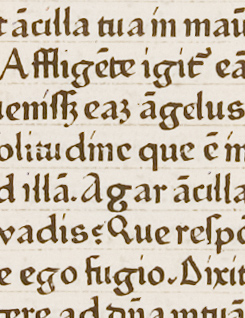 t ācilla tua in man
Affligēte igit᷑ ea
uemissꝫ eaꝫ āgelus
olitudine que ē in
d illā. Agar ācilla
vadis: Que respo
e ego fugio. Dixit
gere ad dn̄am tuā